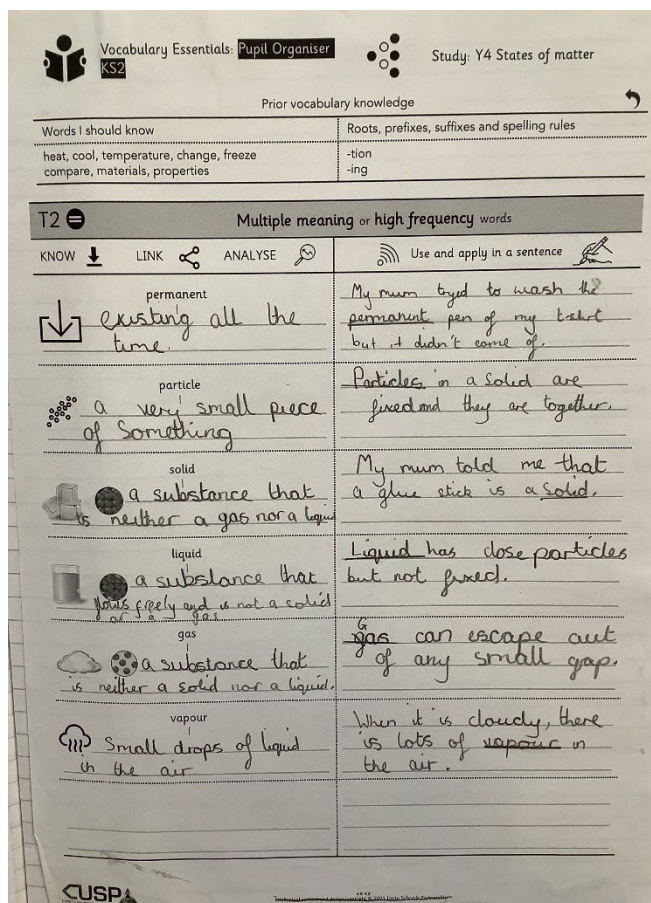 Vocabulary Essentials: Pupil Organiser
KS2
Study: Y4 States of matter
Prior vocabulary knowledge
Words I should know
Roots, prefixes, suffixes and spelling rules
heat, cool, temperature, change, freeze
compare, materials, properties
-tion
-ing
T2
Multiple meaning or high frequency words
KNOW LINK ANALYSE
Use and apply in a sentence
permanent
existing all the
time.
My mum tryed to wash the
permanent pen of my t-shirt
but it didn't come of.
particle
a very small piece
of Something
Particles in a solid are
fixed and they are together.
solid
a substance that
is neither a gas nor a liquid
My mum told me that
a glue stick is a solid.
liquid
a substance that
flows freely and is not a solid
or a gas
Liquid has close particles
but not fixed.
gas
a substance that
is neither a solid nor a liquid.
Gas can escape out
of any small gap.
vapour
Small drops of liquid
in the air
When it is cloudy, there
is lots of vapour in
the air.
CUSP